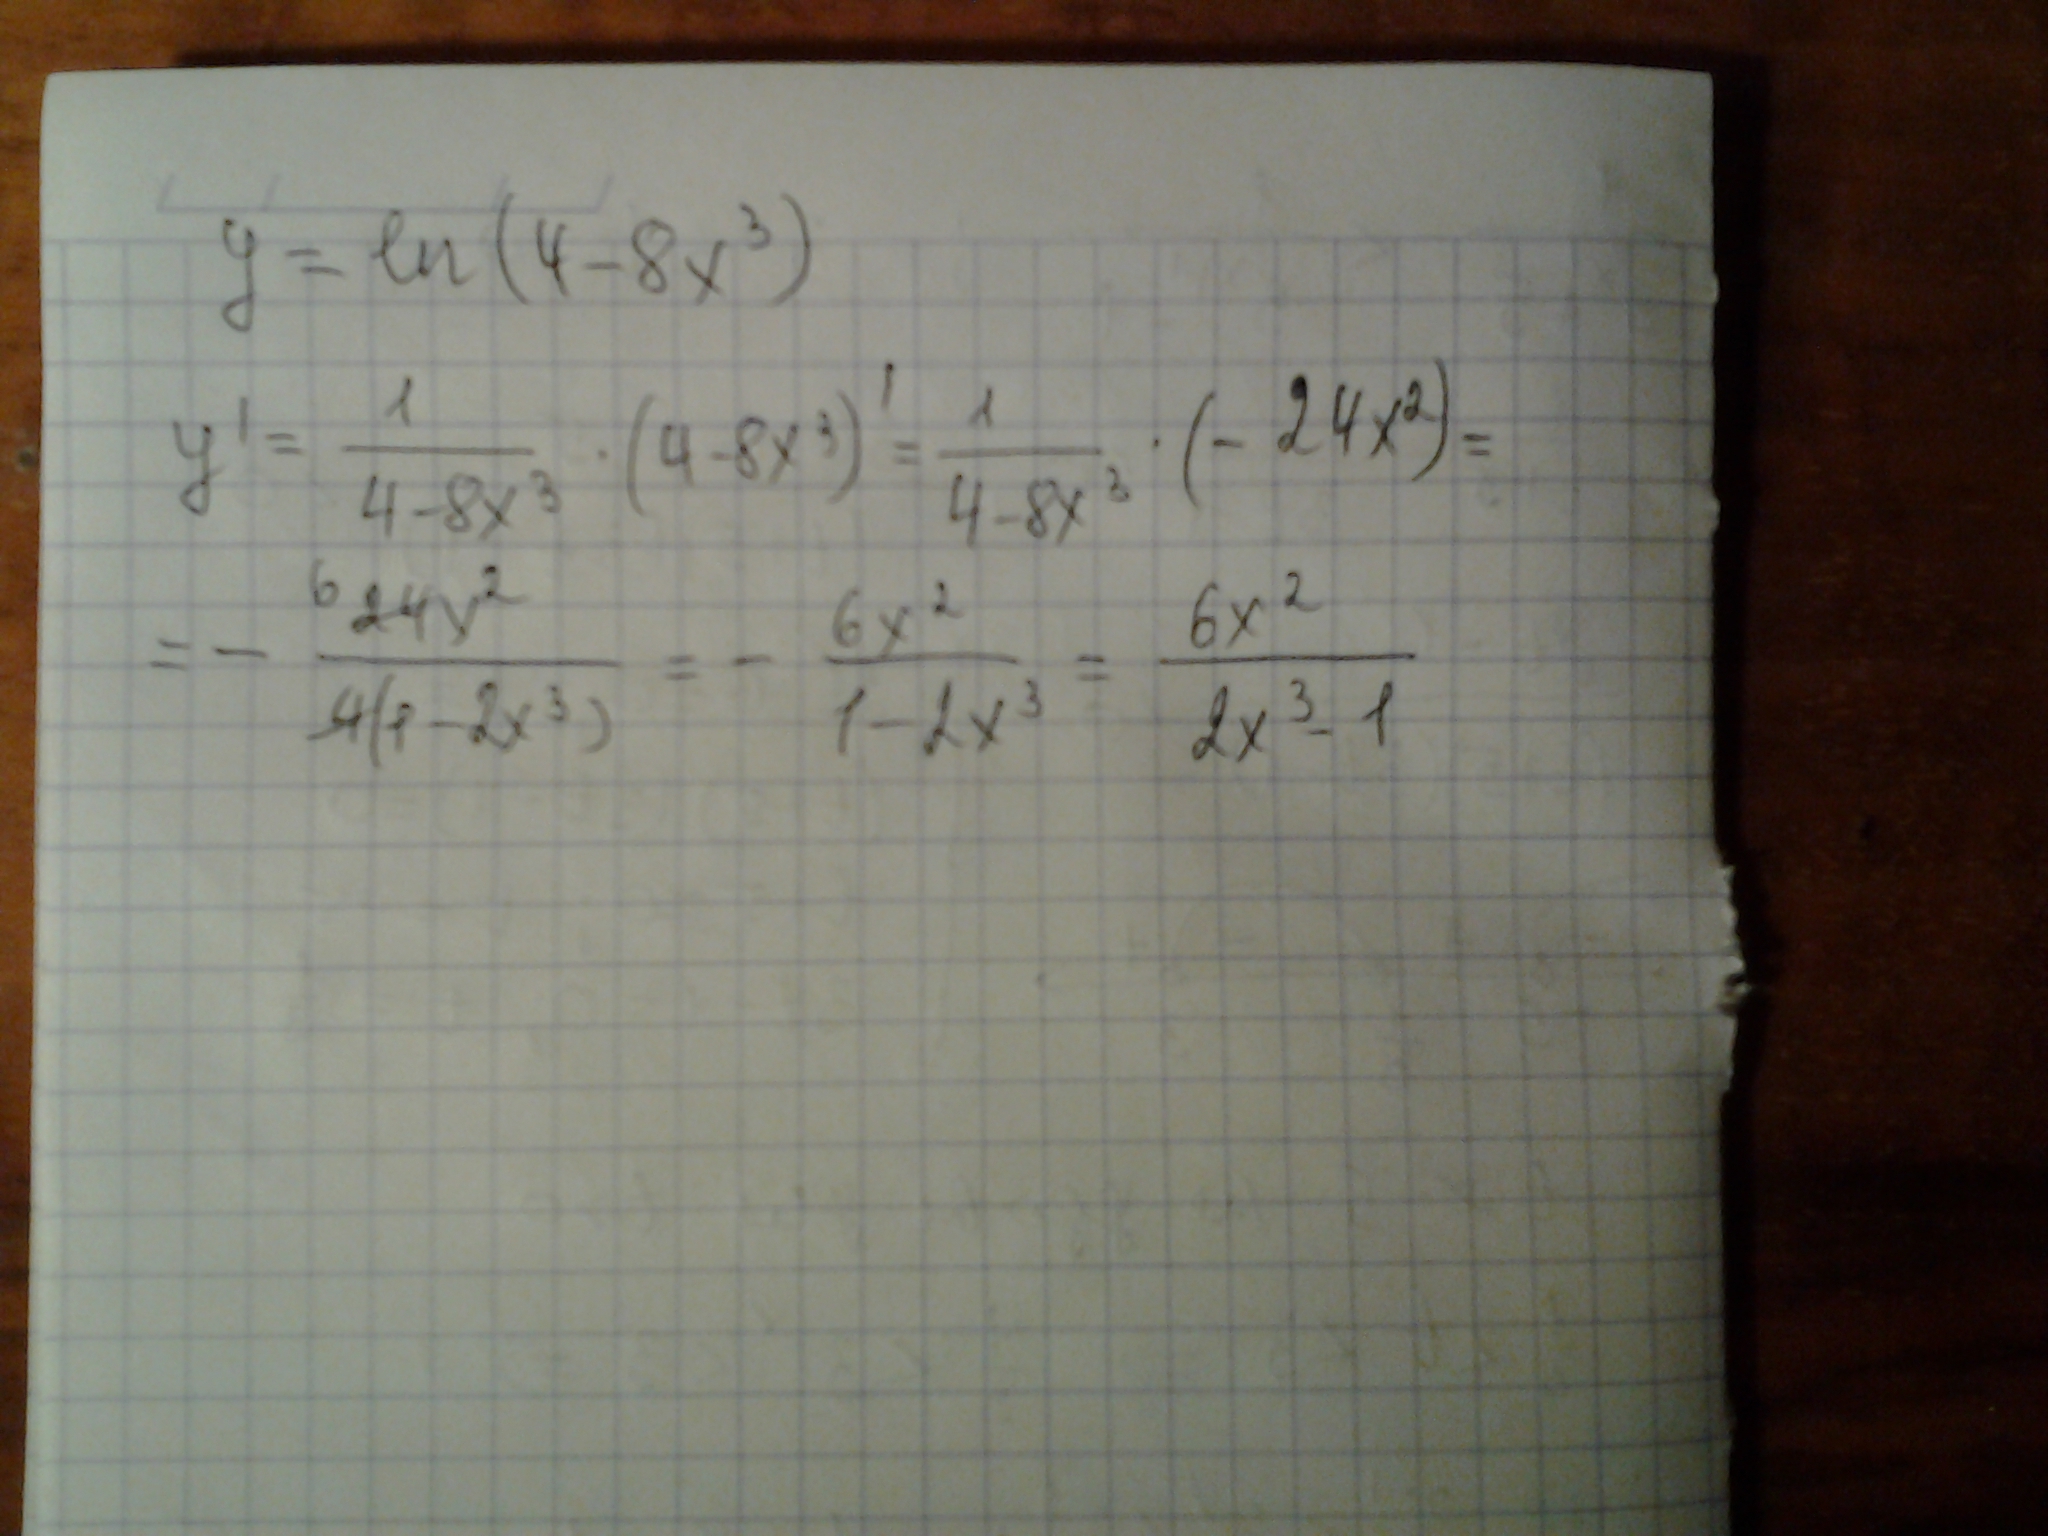 y = ln(4-8x³)
y' = 1/(4-8x³) · (4-8x³)' = 1/(4-8x³) · (-24x²) =
= - 6 24x²/(4(1-2x³)) = - 6x²/(1-2x³) = 6x²/(2x³-1)